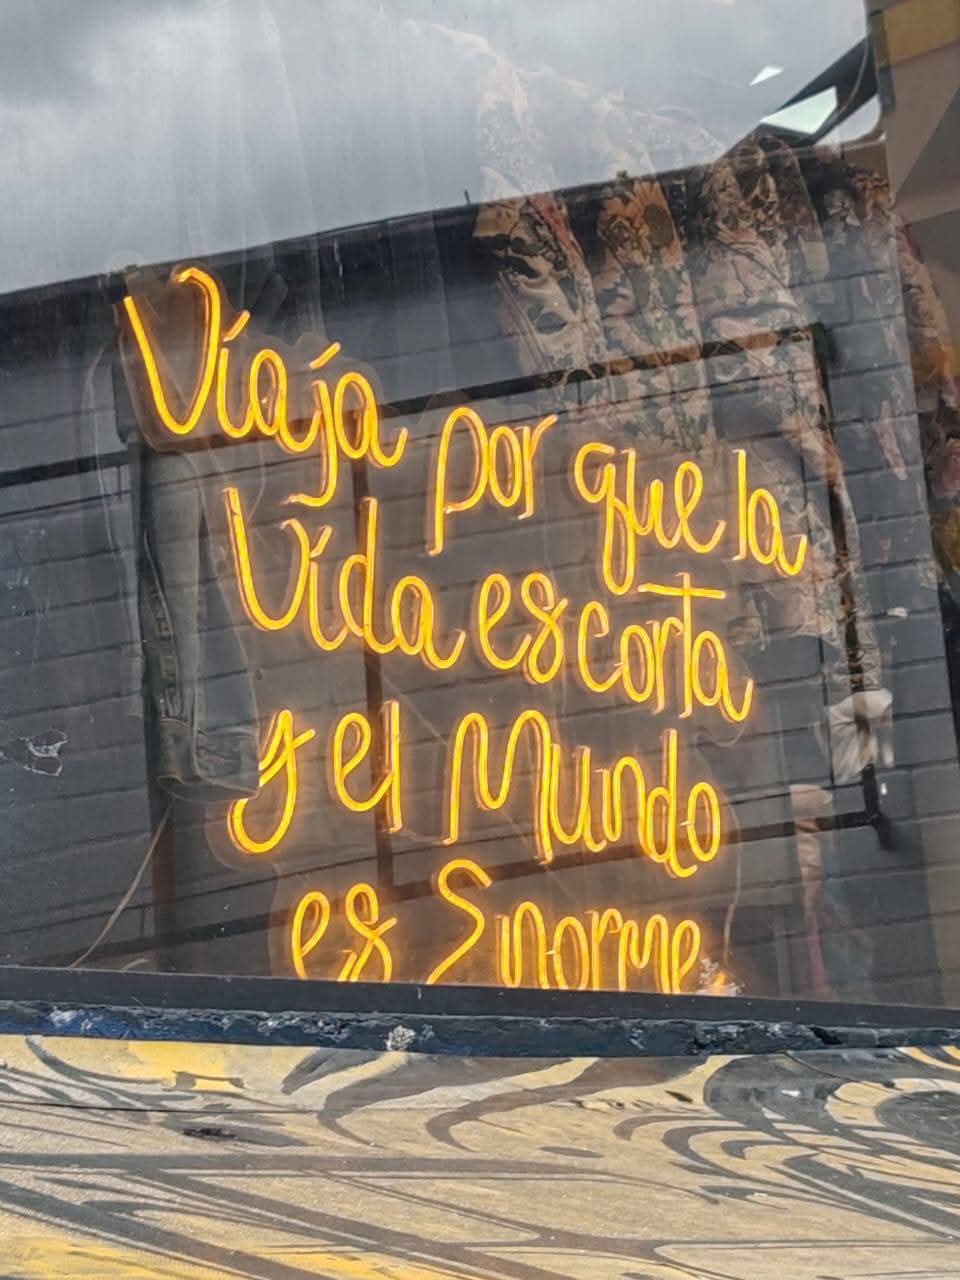 Viaja por que la
Vida es corta
y el Mundo
es Enorme